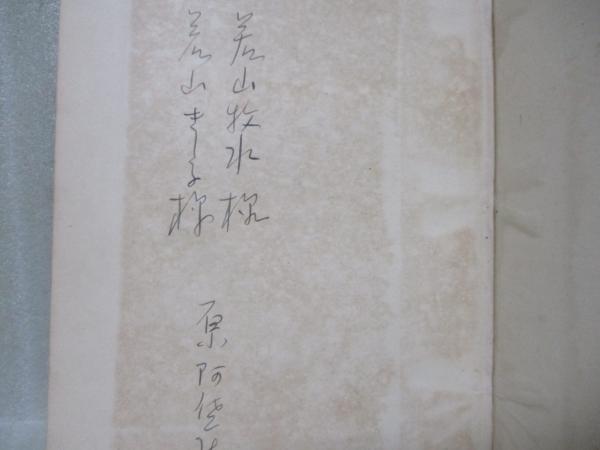 若山牧水様
若山きし子様
原阿佐